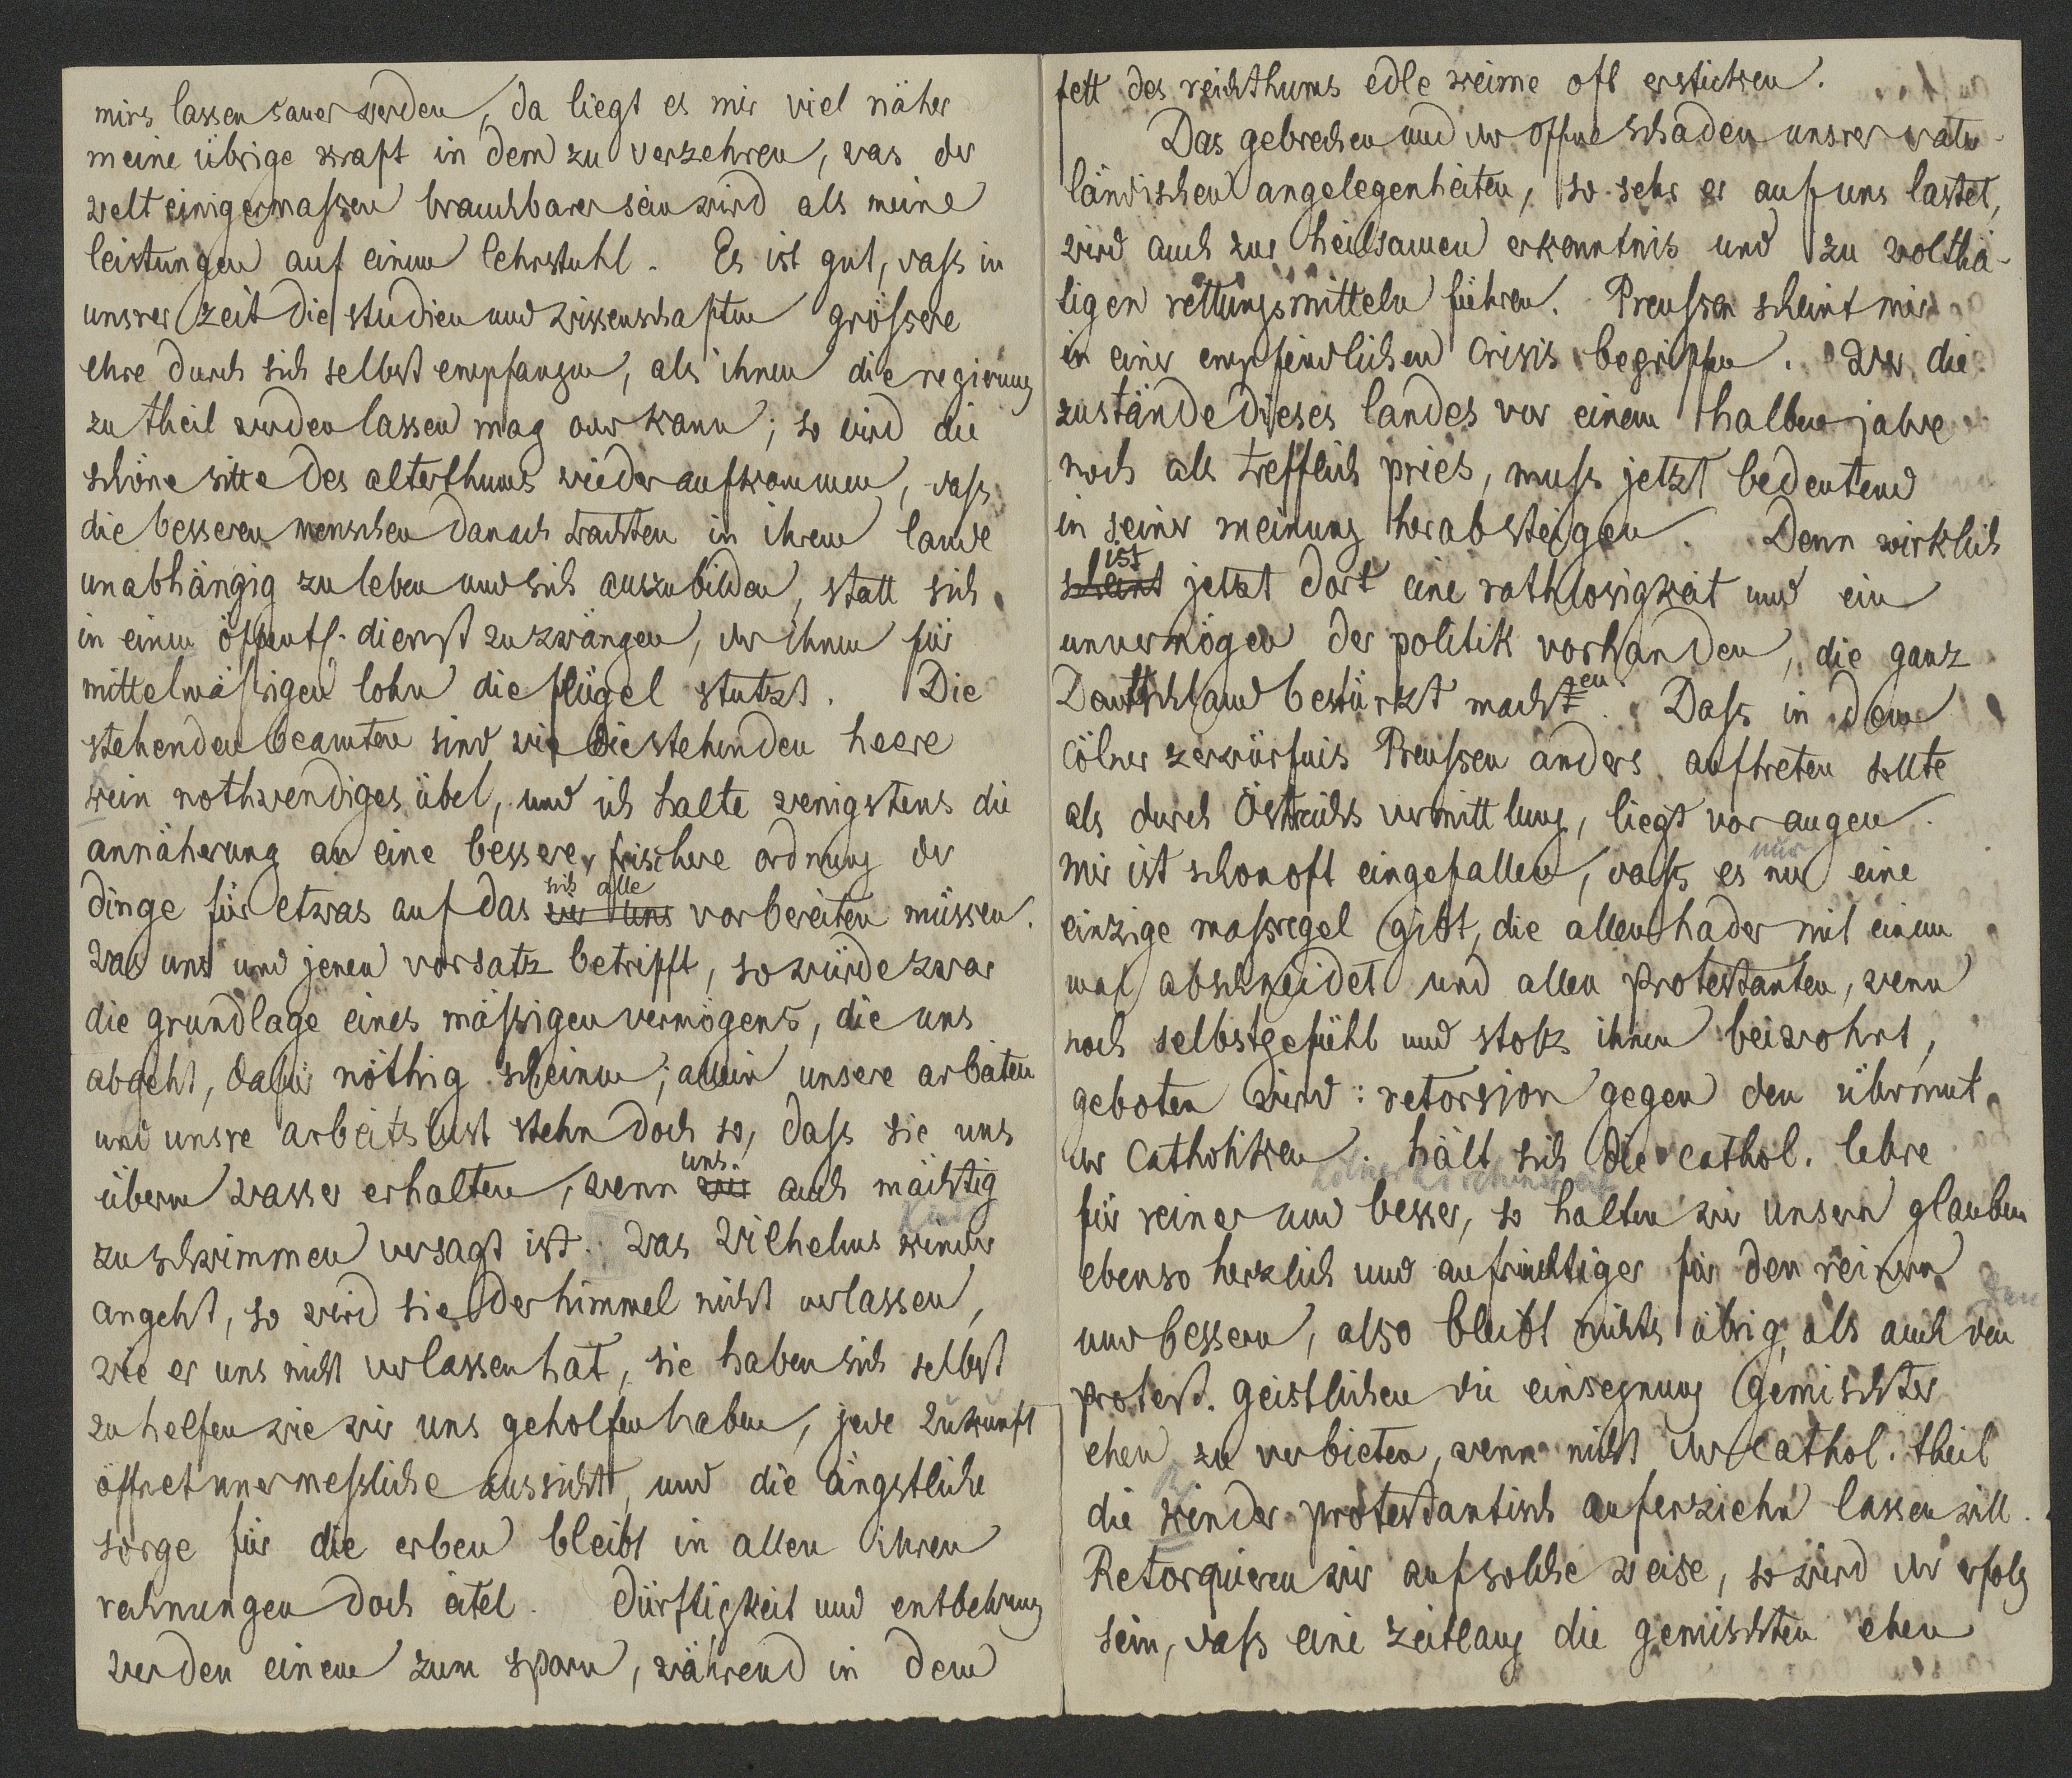 mirs lassen sauer werden, da liegt es mir viel näher
meine übrige kraft in dem zu verzehren, was der
welt einigermassen brauchbarer sein wird als meine
leistungen auf einem lehrstuhl. Es ist gut, dass in
unsrer zeit die studien und wissenschaften grössere
ehre durch sich selbst empfangen, als ihnen die regierung
zu theil werden lassen mag oder kann; so wird die
schöne sitte des alterthums wieder aufkommen, dass
die besseren menschen danach trachten in ihrem lande
unabhängig zu leben und sich auszubilden, statt sich
in einen öffentl. dienst zu zwängen, der ihnen für
mittelmässigen lohn die flügel stutzt. Die
stehenden beamten sind wie die stehenden heere
kein nothwendiges übel, und ich halte wenigstens die
annäherung an eine bessere, frischere ordnung der
sich alle
dinge für etwas auf das wir uns vorbereiten müssen.
Was uns und jenen vorsatz betrifft, so würde zwar
die grundlage eines mässigen vermögens, die uns
abgeht, dafür nöthig scheinen; allein unsere arbeiten
und unsre arbeitslust stehn doch so, dass sie uns
uns
überm wasser erhalten, wenn wir auch mächtig
zu schwimmen versagt ist. Was Wilhelms kinder
angeht, so wird sie der himmel nicht verlassen,
wie er uns nicht verlassen hat, sie haben sich selbst
zu helfen wie wir uns geholfen haben, jede zukunft
öffnet unermessliche aussicht, und die ängstliche
sorge für die erben bleibt in allen ihren
rechnungen doch eitel. Dürftigkeit und entbehrung
werden einem zum sporn, während in dem
fett des reichthums edle keime oft ersticken.
Das gebrechen und der offne schaden unsrer vater-
ländischen angelegenheiten, so sehr er auf uns lastet,
wird auch zur heilsamen erkenntnis und zu wolthä-
tigen rettungsmitteln führen. Preussen scheint mir
in einer empfindlichen crisis begriffen. Wer die
zustände dieses landes vor einem halben jahre
noch als trefflich pries, muss jetzt bedeutend
in seiner meinung herabsteigen. Denn wirklich
ist
scheint jetzt dort eine rathlosigkeit und ein
unvermögen der politik vorhanden, die ganz
en
Deutschland bestürzt macht. Dass in dem
Cölner zerwürfnis Preussen anders auftreten sollte
als durch Östreichs vermittlung, liegt vor augen.
nur
Mir ist schon oft eingefallen, dass es nur eine
einzige massregel gibt, die allen hader mit einem
mal abschneidet und allen protestanten, wenn
noch selbstgefühl und stolz ihnen beiwohnt,
geboten wird: retorsion gegen den übermut
der Catholiken. hält sich die cathol. lehre
Kölner Kirchenstreit
für reiner und besser, so halten wir unsern glauben
ebenso herzlich und aufrichtiger für den reinern
und bessern, also bleibt nichts übrig, als auch den
den
protest. geistlichen die einsegnung gemischter
ehen zu verbieten, wenn nicht der cathol. theil
die kinder protestantisch auferziehn lassen will.
Retorquieren wir auf solche weise, so wird der erfolg
sein, dass eine zeitlang die gemischten ehen